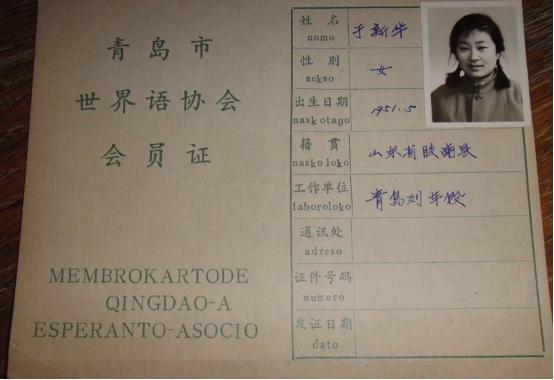 青岛市
世界语协会
会员证
MEMBROKARTODE
QINGDAO-A
ESPERANTO-ASOCIO
姓名 于新华
nomo
性别 女
sekso
出生日期 1951.5
naskotago
籍贯 山东省胶南县
naskoloko
工作单位 青岛列车段
laboroloko
通讯处
adreso
证件号码
numero
发证日期
dato